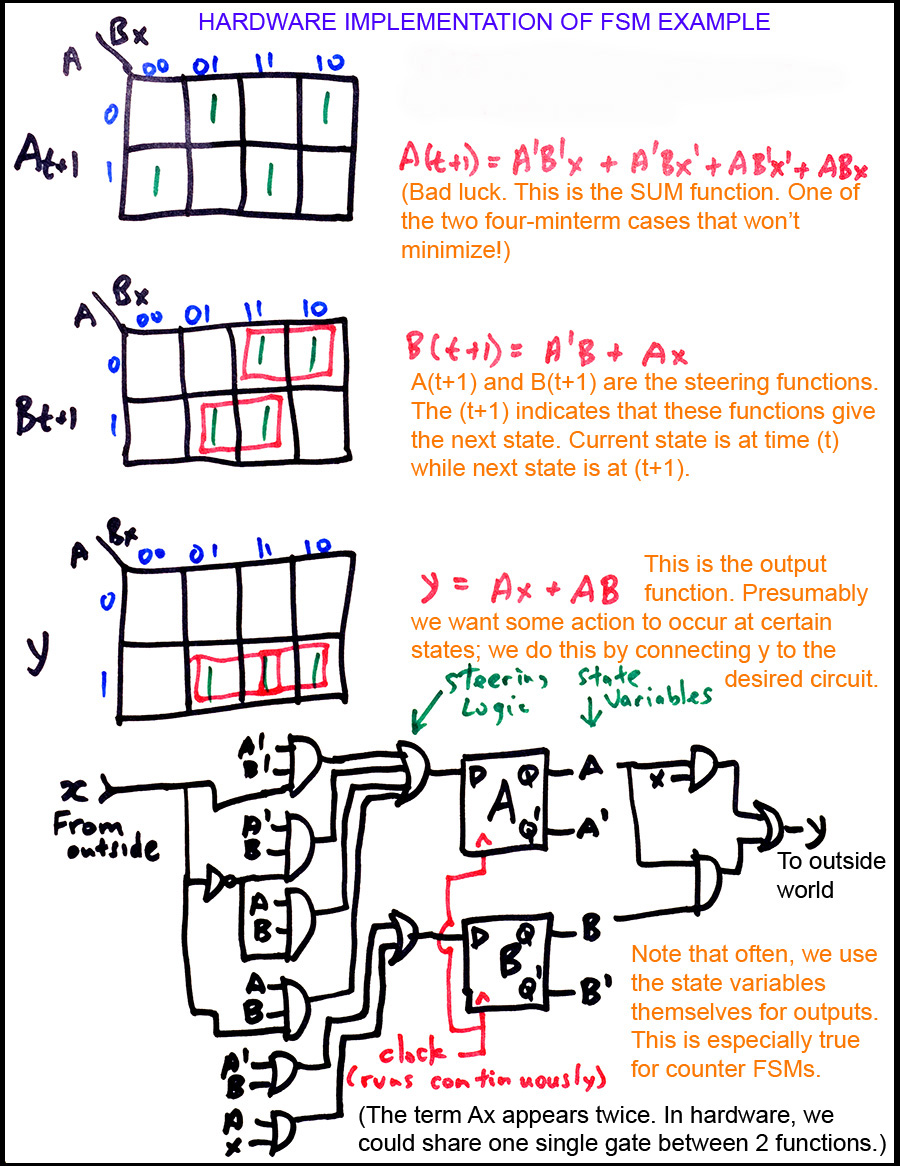 HARDWARE IMPLEMENTATION OF FSM EXAMPLE
A Bx
00 01 11 10
0 1 1
At+1 1 1 1
A(t+1) = A'B'x + A'Bx' + AB'x' + ABx
(Bad luck. This is the SUM function. One of
the two four-minterm cases that won't
minimize!)
A Bx
00 01 11 10
0 1 1
Bt+1 1 1 1
B(t+1) = A'B + Ax
A(t+1) and B(t+1) are the steering functions.
The (t+1) indicates that these functions give
the next state. Current state is at time (t)
while next state is at (t+1).
A Bx
00 01 11 10
0
y 1 1 1 1
y = Ax + AB
This is the output
function. Presumably
we want some action to occur at certain
states; we do this by connecting y to the
desired circuit.
Steering
Logic
State
Variables
x
From
outside
A'
B'
A'
B
A
B
A
B
A'
B
A
x
D Q
A
Q'
A
A'
D Q
B
Q'
B
B'
x
y
To outside
world
clock
(runs continuously)
Note that often, we use
the state variables
themselves for outputs.
This is especially true
for counter FSMs.
(The term Ax appears twice. In hardware, we
could share one single gate between 2 functions.)